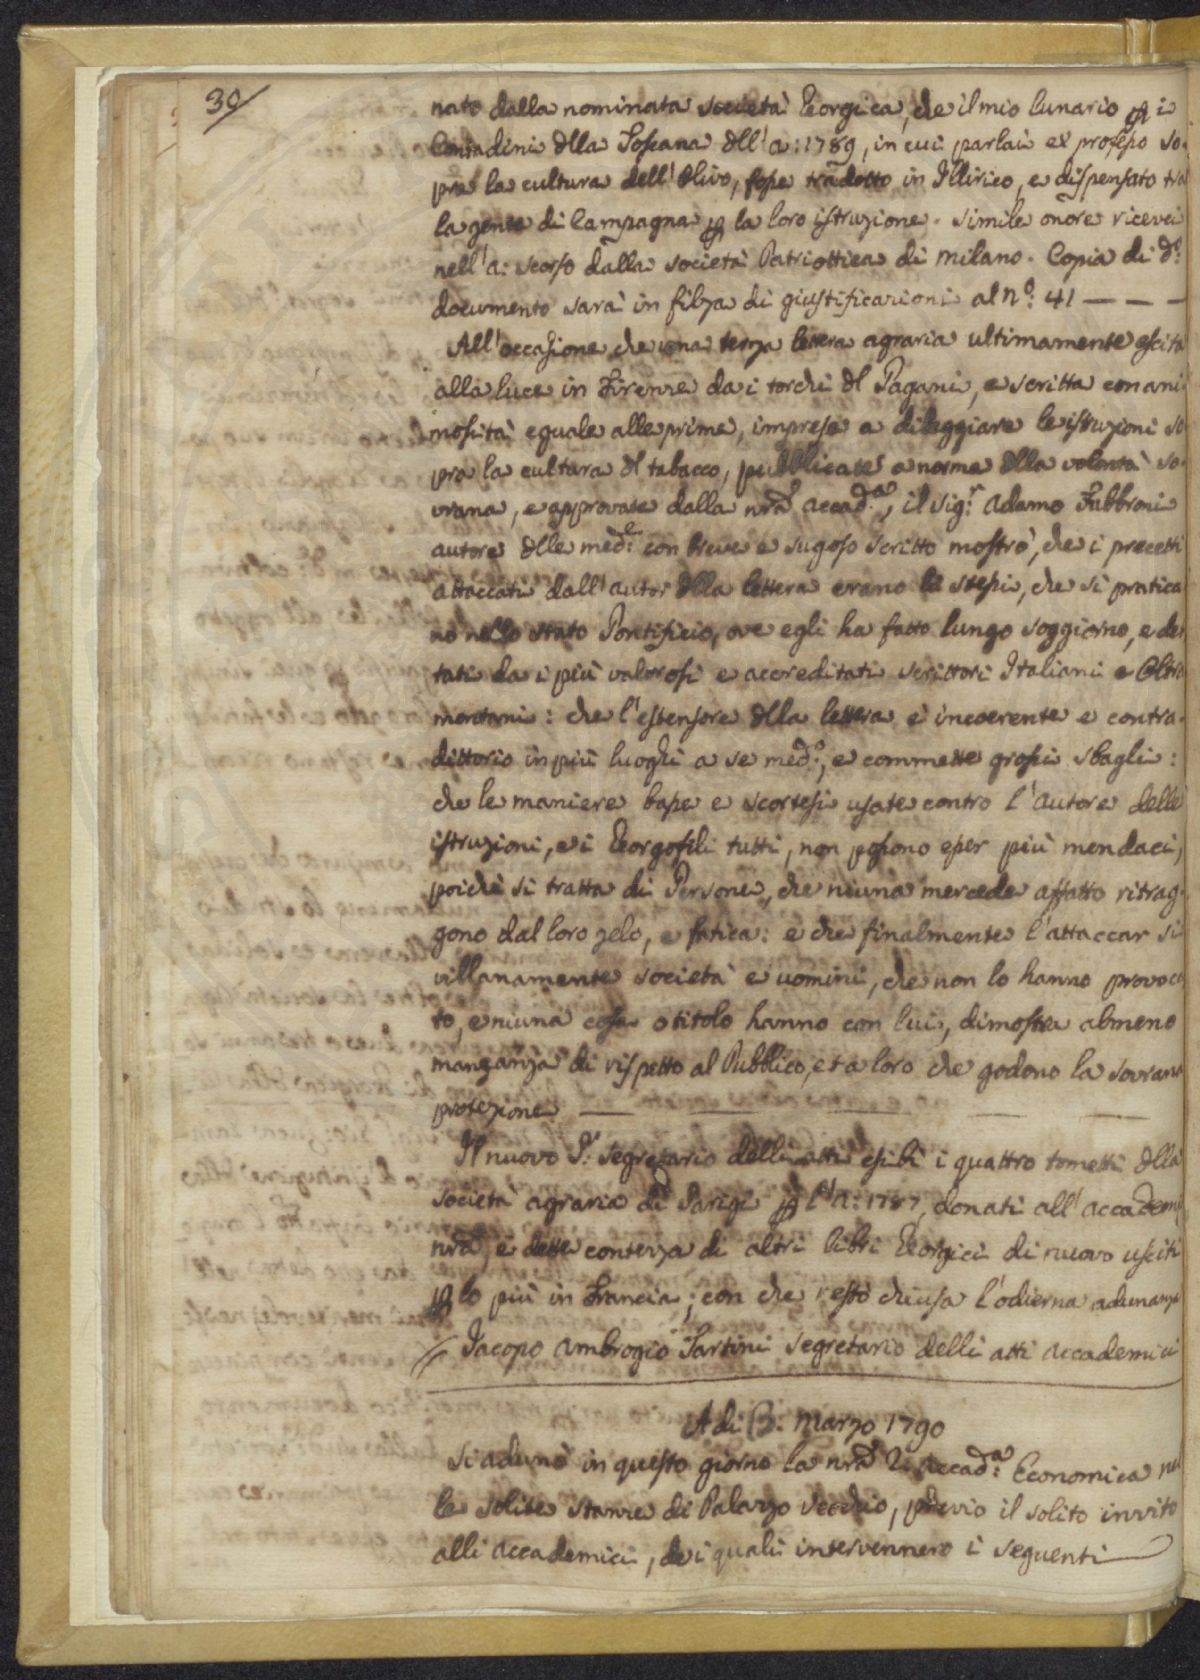 30
nato dalla nominata società Georgica, che il mio lunario ꝑ i
Contadini dlla Toscana dll'a: 1789, in cui parlai ex professo so-
pra la cultura dell'Olivo, fosse tradotto in Illirico, e dispensato tra
la gente di Campagna ꝑ la loro istruzione. Simile onore ricevei
nell'a: scorso dalla società Patriottica di Milano. Copia di do:
documento sarà in filza di giustificazioni al no: 41 — — —
All'occasione che una terza lettera agraria ultimamente escita
alla luce in Firenze da i torchi dl Pagani, e scritta con ani-
mosità eguale alle prime, imprese a dileggiare le istruzioni so-
pra la cultura dl tabacco, pubblicate a norma dlla volontà so-
vrana, e approvate dalla nra accada:, il Sigr: Adamo Fabbroni
autore dlle mede: con breve e sugoso scritto mostrò, che i precetti
attaccati dall'autor dlla lettera erano li stessi, che si pratica
no nello stato Pontificio, ove egli ha fatto lungo soggiorno, e det
tati da i più valorosi e accreditati scrittori Italiani e Oltra
montani: che l'estensore dlla lettera è incoerente e contra-
dittorio in più luoghi a se medo:, e commette grossi sbagli:
che le maniere basse e scortesi usate contro l'autore delle
istruzioni, e i Georgofili tutti, non possono esser più mendaci,
poichè si tratta di Persone, che niuna mercede affatto ritrag-
gono dal loro zelo, e fatica: e che finalmente l'attaccar sì
villanamente società e uomini, che non lo hanno provoca
to, e niuna cosa o titolo hanno con lui, dimostra almeno
mancanza di rispetto al Pubblico, et a loro che godono la sovrana
protezione — — — — —
Il nuovo Sr: Segretario delli atti esibì i quattro tometti dlla
società agraria di Parigi ꝑ l'a: 1787, donati all'accademia
nra, e dette contezza di altri libri Georgici di nuovo usciti
ꝑ lo più in Francia; con che restò chiusa l'odierna adunanza
Jacopo Ambrogio Tartini Segretario delli atti accademici
A di 3: Marzo 1790
Si adunò in questo giorno la nra R. Accada: Economica nel
le solite stanze di Palazzo vecchio, previo il solito invito
alli accademici, de i quali intervennero i seguenti